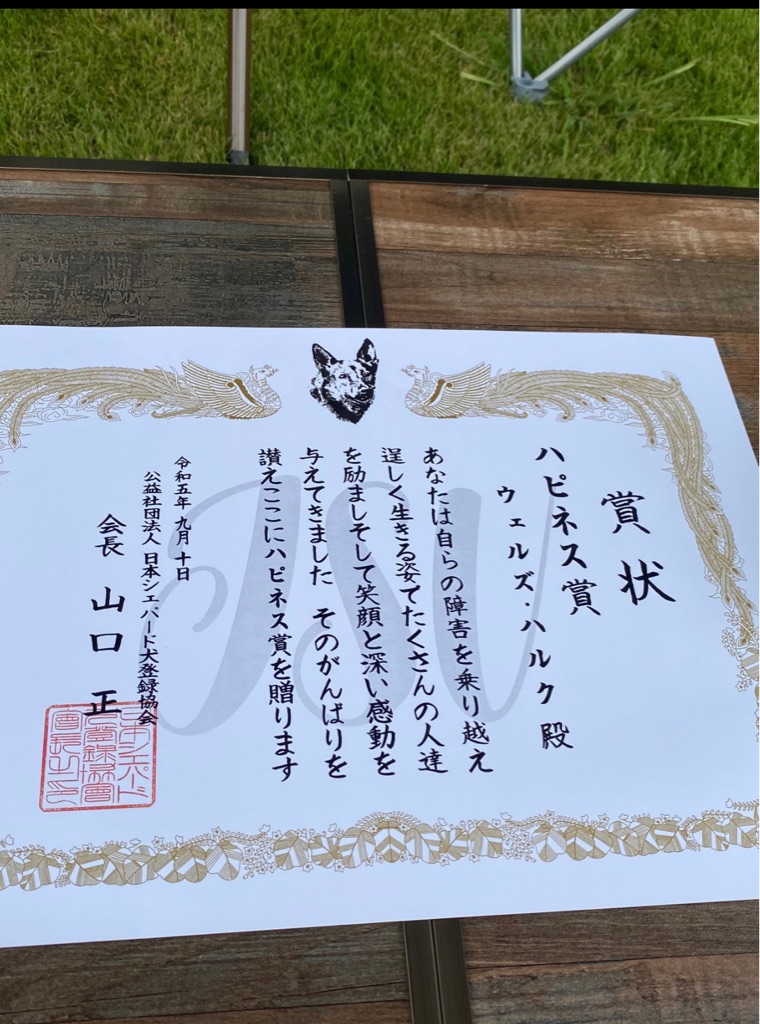 賞状
ハピネス賞
ウェルズ・ハルク 殿
あなたは自らの障害を乗り越え
逞しく生きる姿てたくさんの人達
を励ましそして笑顔と深い感動を
与えてきました そのがんばりを
讃えここにハピネス賞を贈ります
令和五年 九月 十日
公益社団法人 日本シェパード犬登録協会
会長 山口 正
JSV